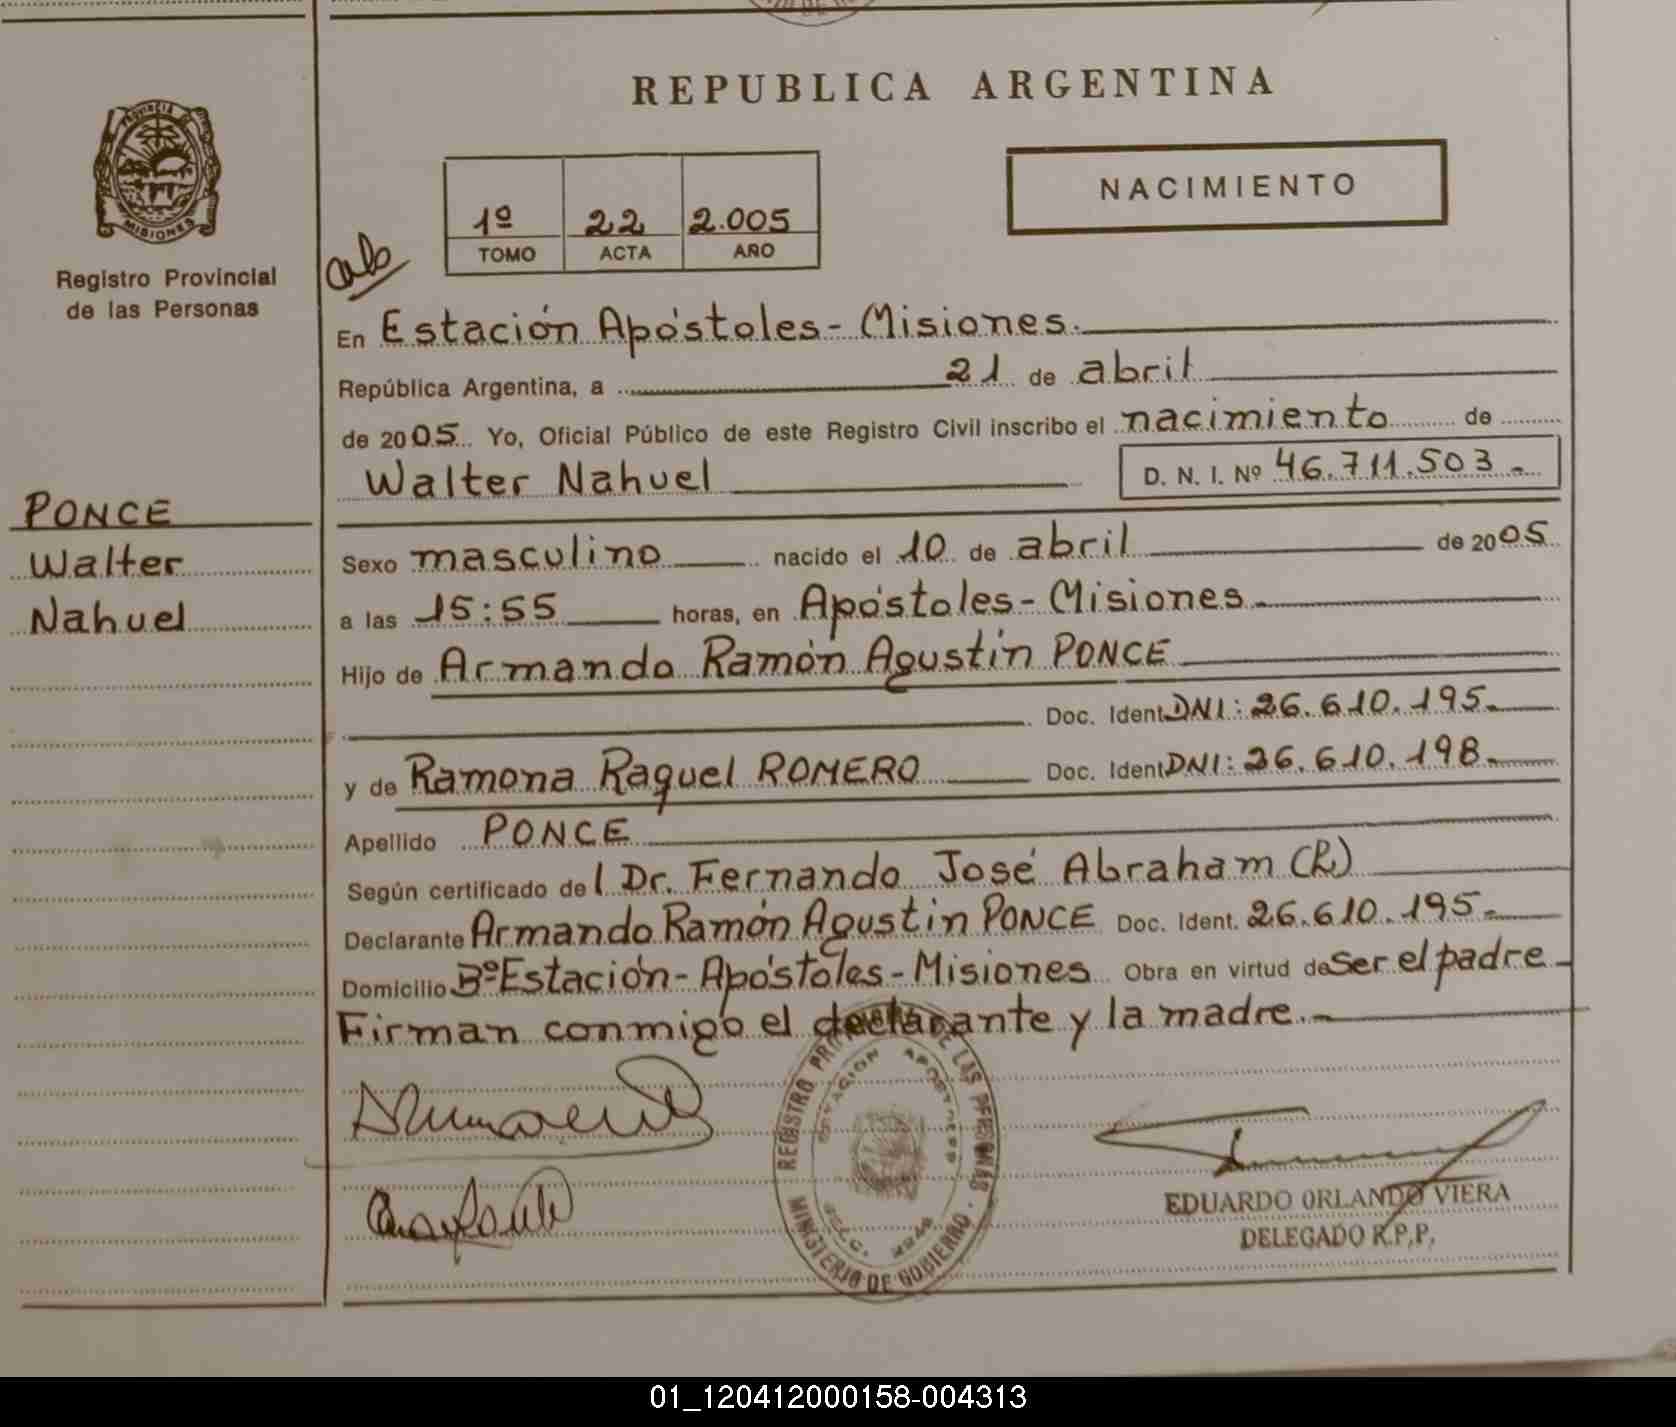 REPUBLICA ARGENTINA
NACIMIENTO
1º 22 2.005
TOMO ACTA AÑO
MISIONES
Registro Provincial
de las Personas
PONCE
Walter
Nahuel
En Estación Apóstoles - Misiones.
República Argentina, a 21 de abril
de 2005 Yo, Oficial Público de este Registro Civil inscribo el nacimiento de
Walter Nahuel D. N. I. Nº 46.711.503.-
Sexo masculino nacido el 10 de abril de 2005
a las 15:55 horas, en Apóstoles - Misiones.
Hijo de Armando Ramón Agustín PONCE
Doc. Ident DNI: 26.610.195.
y de Ramona Raquel ROMERO Doc. Ident DNI: 26.610.198.
Apellido PONCE
Según certificado del Dr. Fernando José Abraham (R)
Declarante Armando Ramón Agustín PONCE Doc. Ident. 26.610.195.
Domicilio Bº Estación - Apóstoles - Misiones Obra en virtud de Ser el padre
Firman conmigo el declarante y la madre.
REGISTRO PROVINCIAL DE LAS PERSONAS
ESTACION APOSTOLES
MINISTERIO DE GOBIERNO
EDUARDO ORLANDO VIERA
DELEGADO R.P.P.
01_120412000158-004313